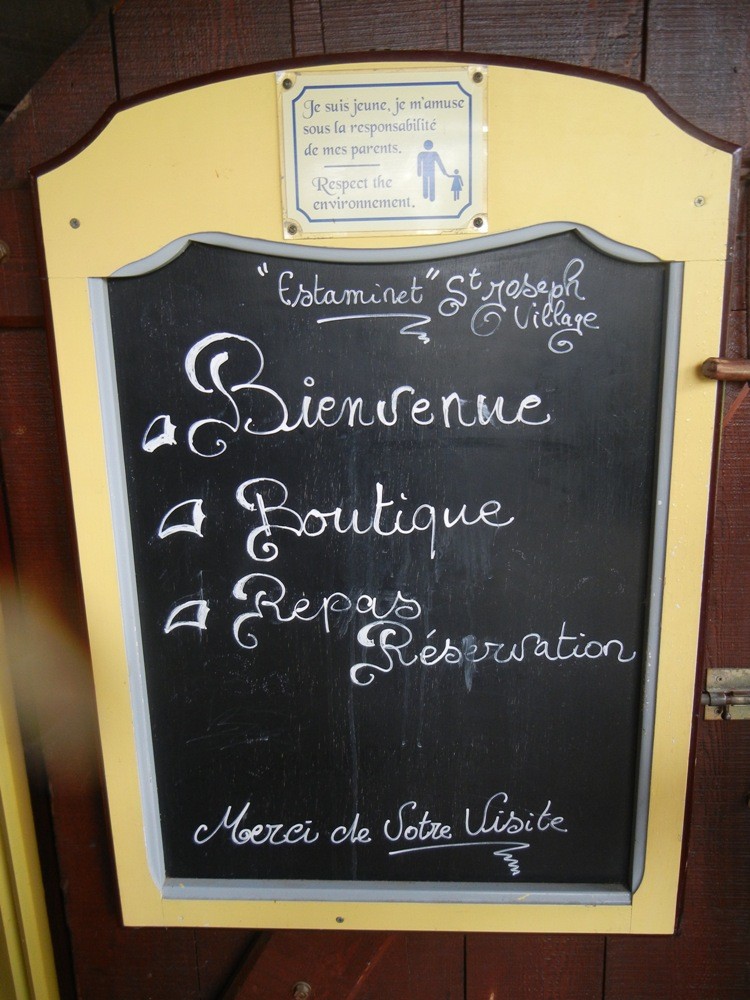 Je suis jeune, je m'amuse
sous la responsabilité
de mes parents.
Respect the
environnement.
"Estaminet" St Joseph
Village
Bienvenue
Boutique
Repas
Réservation
Merci de Votre Visite